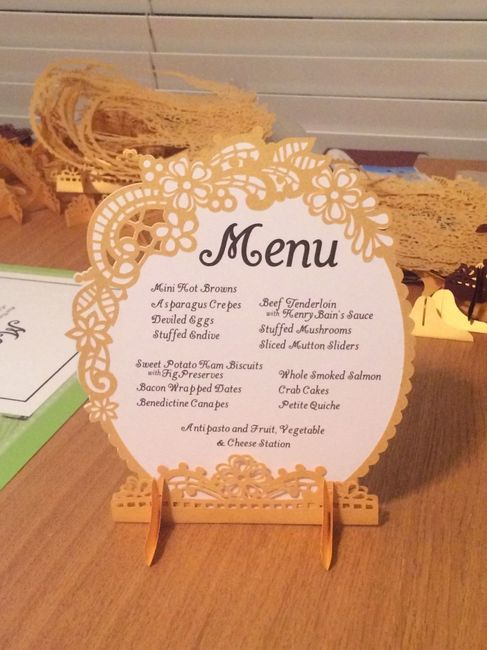 Menu
Mini Hot Browns
Asparagus Crepes
Deviled Eggs
Stuffed Endive
Beef Tenderloin
with Henry Bain's Sauce
Stuffed Mushrooms
Sliced Mutton Sliders
Sweet Potato Ham Biscuits
with Fig Preserves
Bacon Wrapped Dates
Benedictine Canapes
Whole Smoked Salmon
Crab Cakes
Petite Quiche
Antipasto and Fruit, Vegetable
& Cheese Station